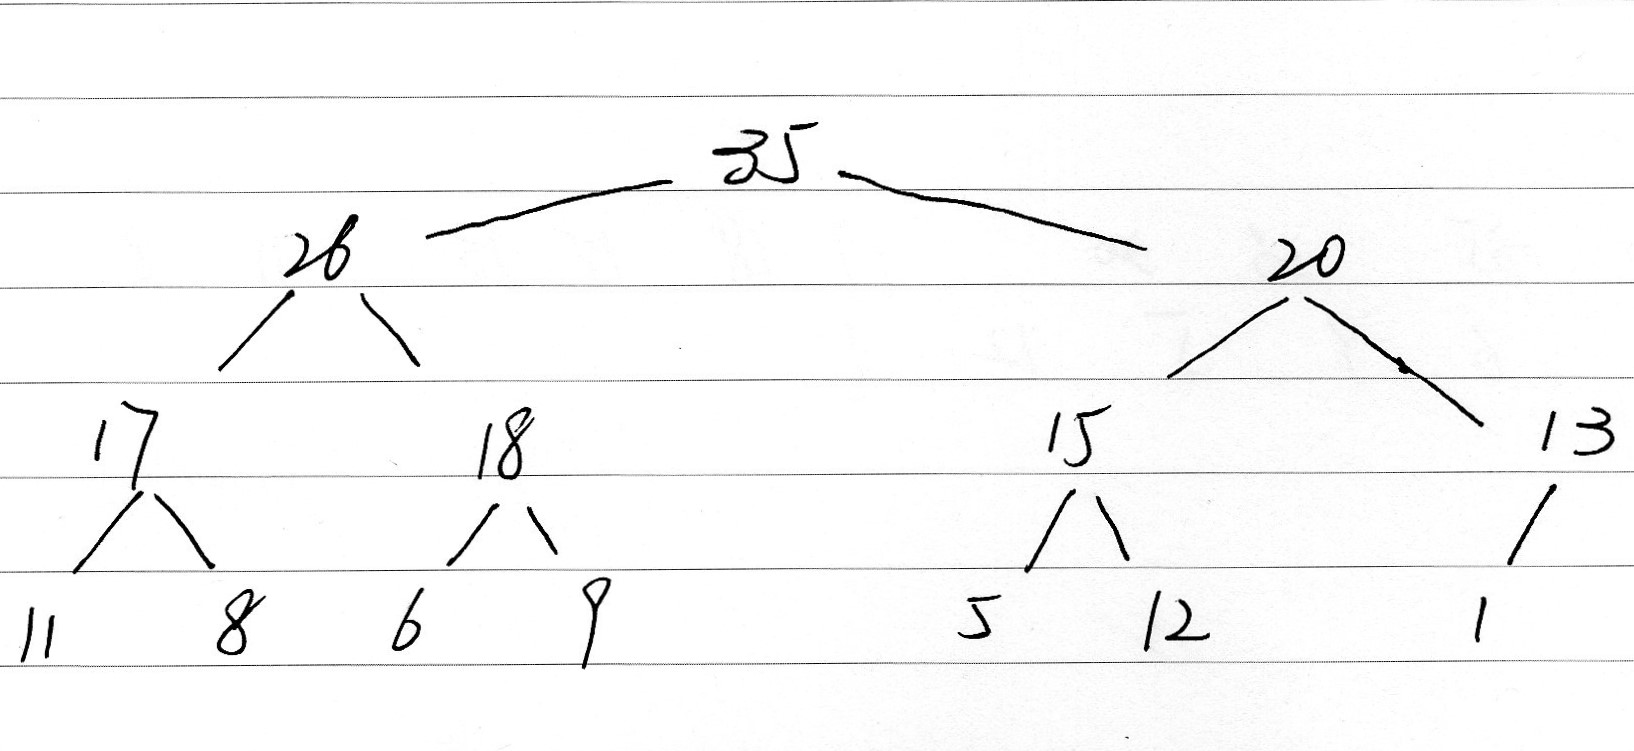 35
26 20
17 18 15 13
11 8 6 9 5 12 1